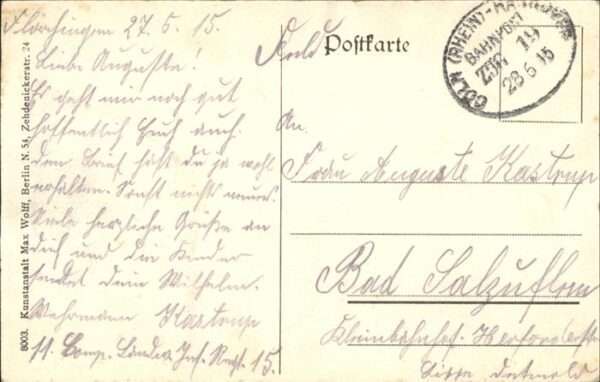 Flörchingen 27.5.15.
Liebe Auguste!
Es geht mir noch gut
hoffentlich Euch auch.
Den Brief hast Du ja wohl
erhalten. Sonst nichts neues.
Viele herzliche Grüße an
Dich und die Kinder
sendet Dein Wilhelm.
Wehrmann Kastrup
11. Comp. Landw. Inf. Regt. 15.
8003. Kunstanstalt Max Wolff, Berlin N. 54, Zehdenickerstr. 24
Postkarte
CÖLN (RHEIN)-HANNOVER
BAHNPOST
ZUG 19
28 5 15
An
Frau Auguste Kastrup
Bad Salzuflen
Kleinbahnhof
Lippe Detmold